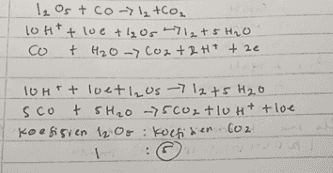 I₂O₅ + CO → I₂ + CO₂
10 H⁺ + 10e + I₂O₅ → I₂ + 5 H₂O
CO + H₂O → CO₂ + 2H⁺ + 2e
10H⁺ + 10e + I₂O₅ → I₂ + 5 H₂O
5 CO + 5H₂O → 5CO₂ + 10 H⁺ + 10e
Koefisien I₂O₅ : koefisien CO₂
1 : 5